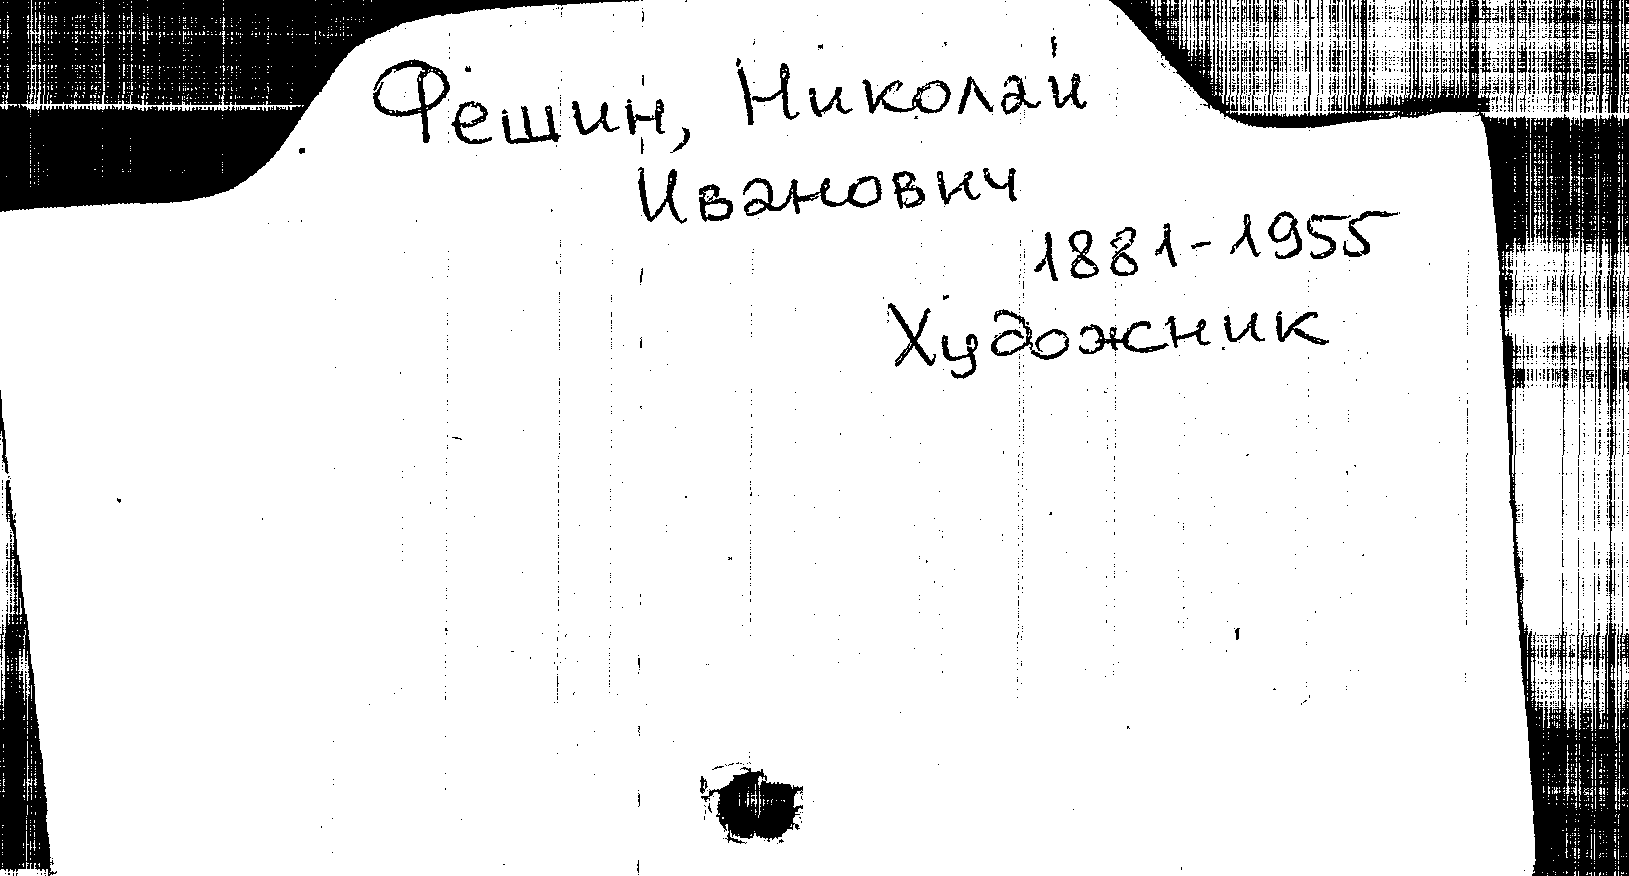 Фешин, Николай
Иванович
1881-1955
Художник